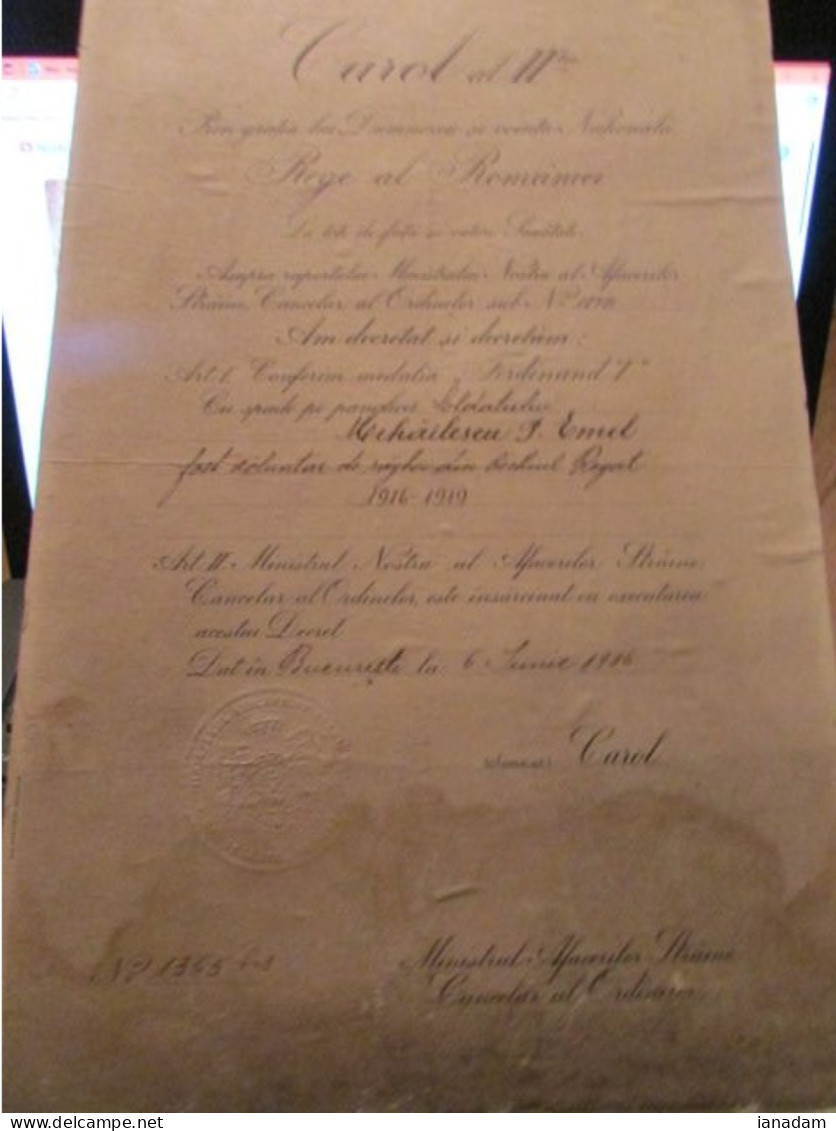 Carol al II
Prin gratia lui Dumnezeu si vointa Nationala
Rege al României
La toti de fata si viitori Sanatate
Asupra raportului Ministrului Nostru al Afacerilor
Străine, Cancelar al Ordinelor sub No
Am decretat si decretăm:
Art. I. Conferim medalia „Ferdinand I"
Cu spade pe panglica soldatului
Mihăilescu P. Emil
fost voluntar de răsboi din Vechiul Regat
1916-1919
Art. II. Ministrul Nostru al Afacerilor Străine,
Cancelar al Ordinelor, este însarcinat cu executarea
acestui Decret
Dat în Bucuresti la 6 Iunie
Carol
No 1365
Ministrul Afacerilor Străine
Cancelar al Ordinelor
ianadam